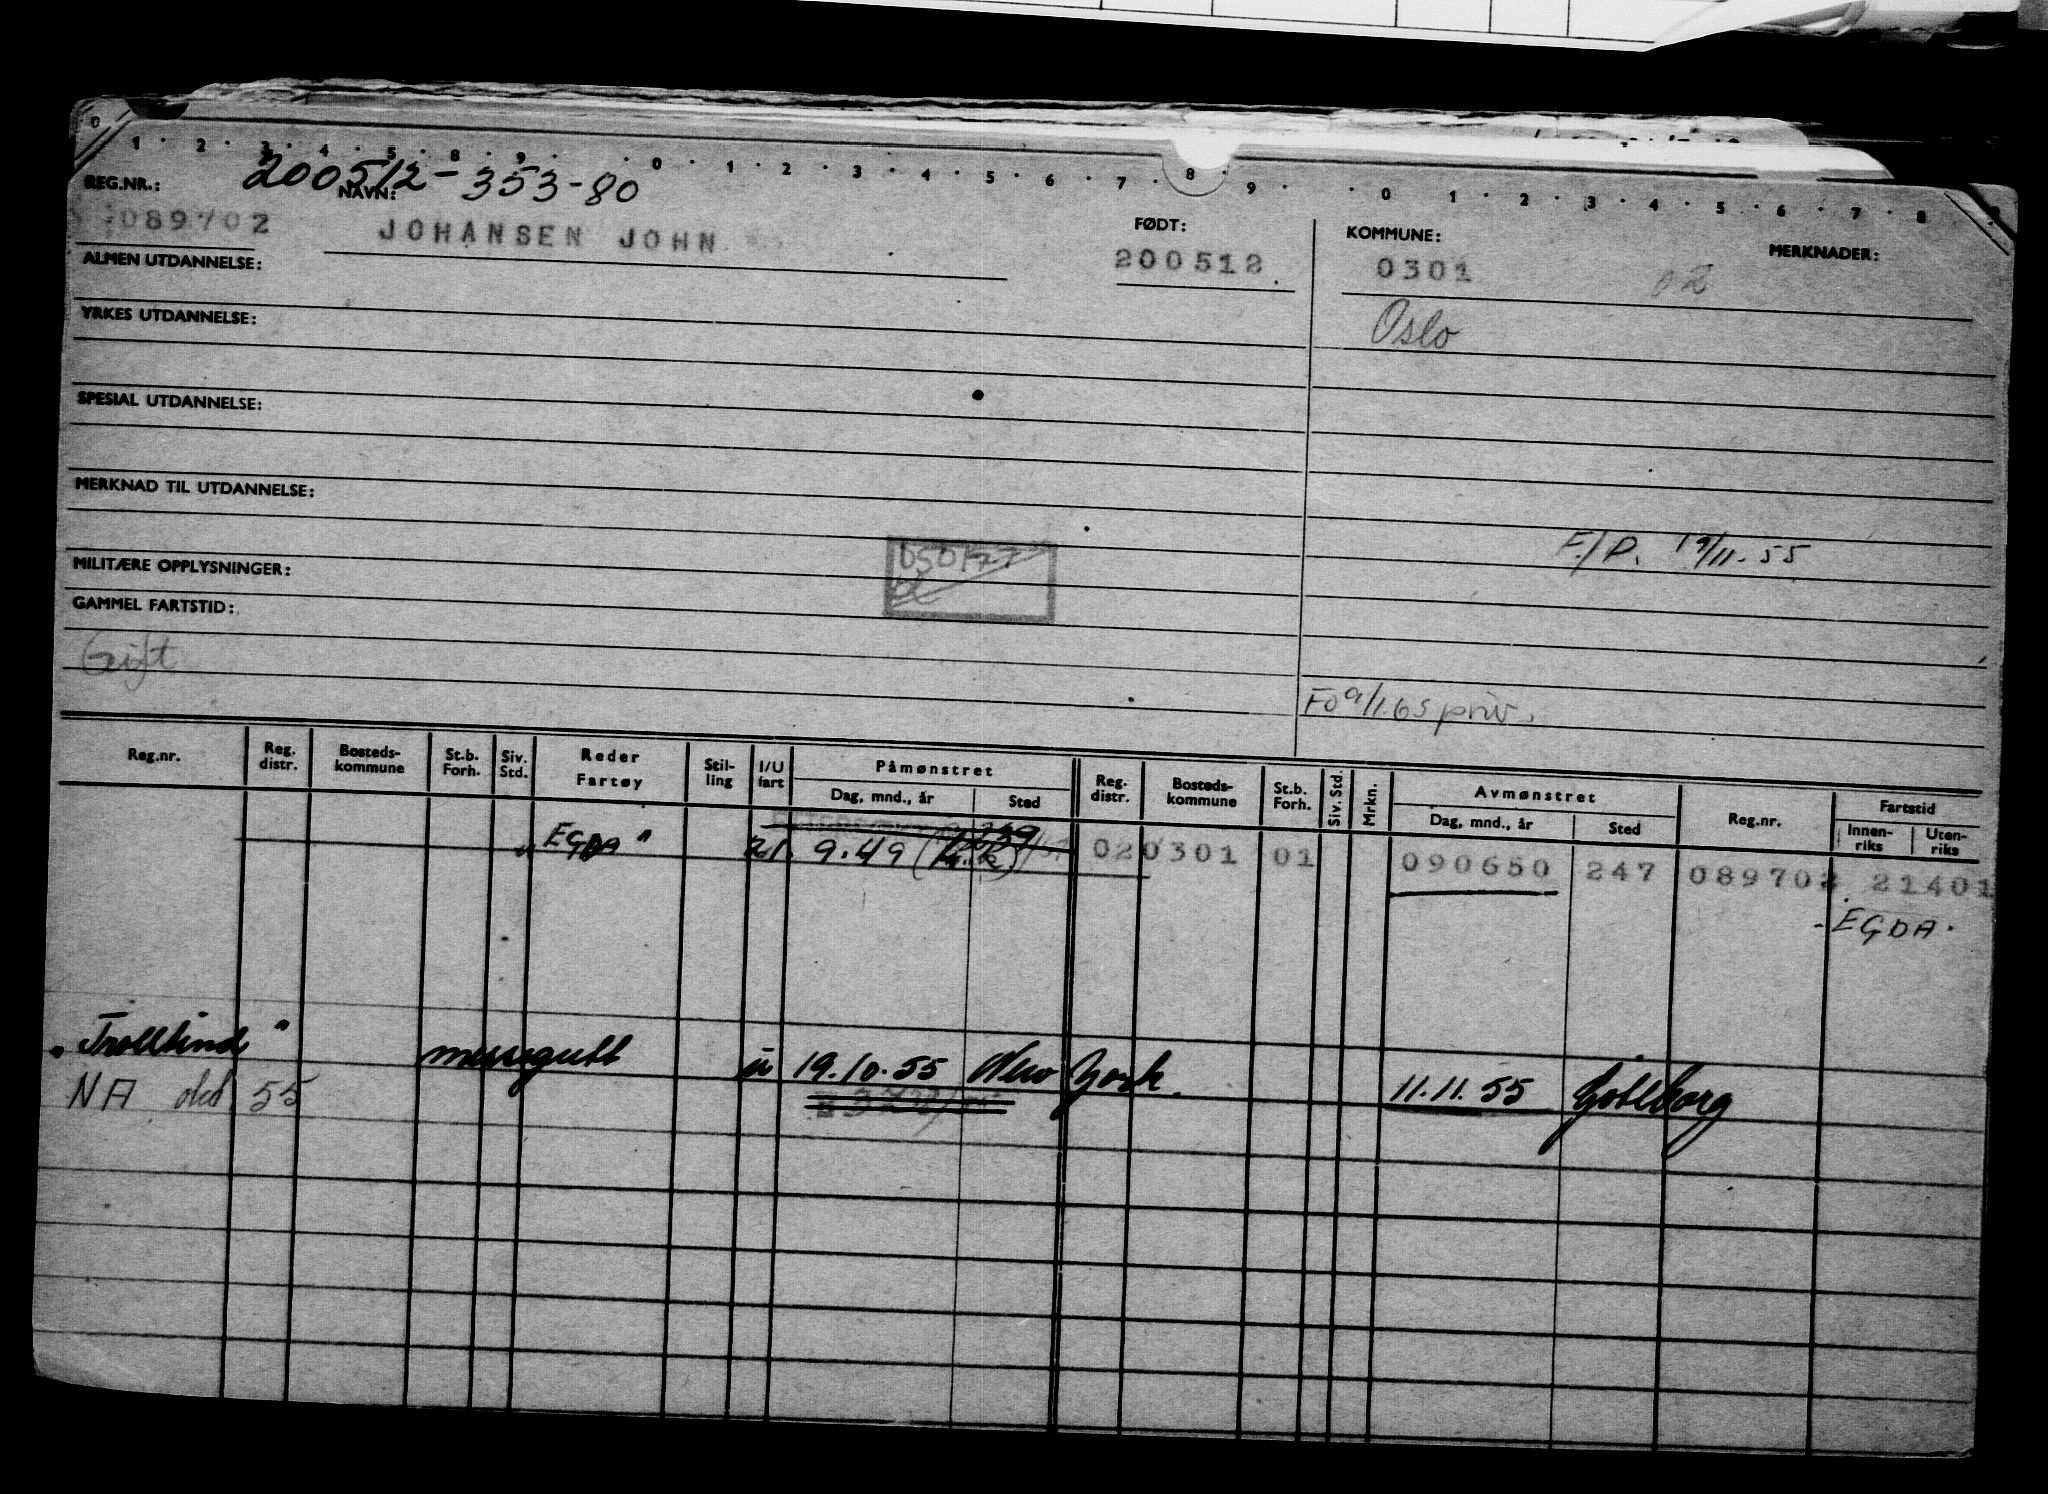 0 1 2 3 4 5 8 9 0 1 2 3 4 5 6 7 8 9 0 1 2 3 4 5 6 7 8
200512-353-80
REG.NR.: NAVN: FØDT: KOMMUNE: MERKNADER:
089702 JOHANSEN JOHN 200512 0301 02
ALMEN UTDANNELSE:
Oslo
YRKES UTDANNELSE:
SPESIAL UTDANNELSE:
MERKNAD TIL UTDANNELSE:
F./P. 19/11.55
MILITÆRE OPPLYSNINGER:
GAMMEL FARTSTID:
Gift
FO 9/1.65 priv.
Reg.nr. Reg. distr. Bosteds-kommune St.b. Forh. Siv. Std. Reder Fartøy Stil-ling I/U fart Påmønstret Dag, mnd., år Sted Reg. distr. Bosteds-kommune St.b. Forh. Siv. Std. Mrkn. Avmønstret Dag, mnd., år Sted Reg.nr. Fartstid Innen-riks Uten-riks
"EGDA" 21. 9.49 020301 01 090650 247 089702 21401
-EGDA-
"Trolltind" messegutt u 19.10.55 New York. 11.11.55 Gøteborg
NA okt 55